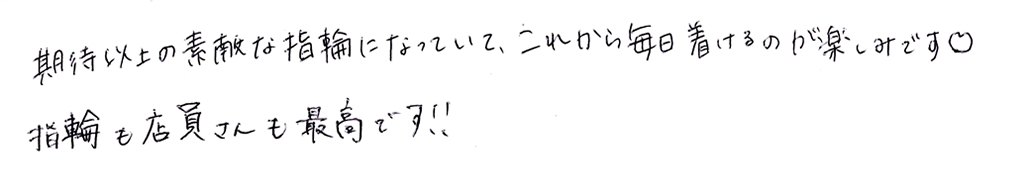 期待以上の素敵な指輪になっていて、これから毎日着けるのが楽しみです♡
指輪も店員さんも最高です!!